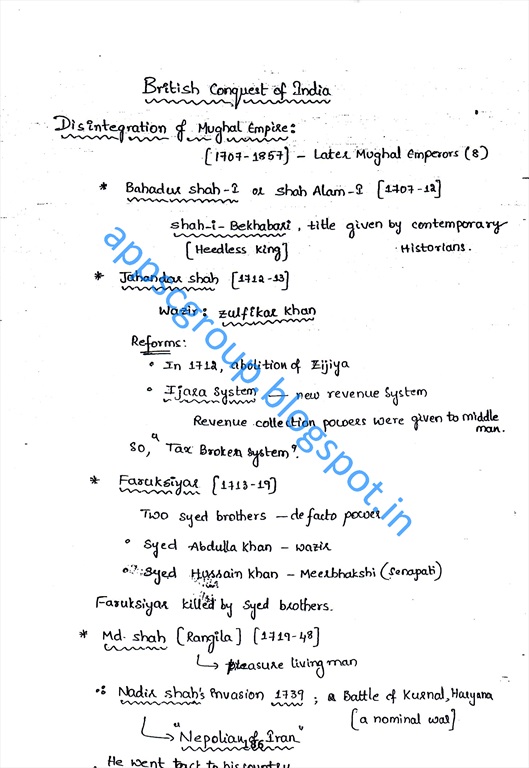 British Conquest of India
Disintegration of Mughal Empire:
[1707-1857] - Later Mughal Emperors (8)
* Bahadur shah-I or shah Alam-I [1707-12]
shah-i-Bekhabari, title given by contemporary
[Heedless King] Historians.
* Jahandar shah [1712-13]
Wazir: Zulfikar Khan
Reforms:
• In 1712, abolition of Zijiya
• Ijara system — new revenue system
Revenue collection powers were given to middle
man.
So, "Tax Broker system".
* Faruksiyar [1713-19]
Two syed brothers - defacto power
• Syed Abdulla khan - wazir
• Syed Hussain khan - Meerbhakshi (Senapati)
Faruksiyar killed by Syed brothers.
* Md. shah (Rangila) [1719-48]
↳ pleasure living man
•: Nadir shah's Invasion 1739; Battle of Kurnal, Haryana
[a nominal war]
↳ "Nepolian of Iran"
186
. He went back to his country
appscgroup.blogspot.in